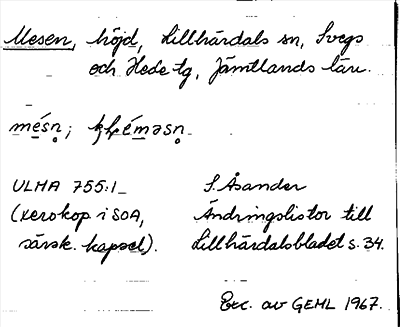 Mesen, höjd, Lillhärdals sn, Svegs
och Hede tg, Jämtlands län.
mésn̥;
ULMA 755:1
S. Åsander
(xerokop i SOA,
Ändringslistor till
särsk. kapsel).
Lillhärdalsbladet s. 34.
Exc. av GEHL 1967.